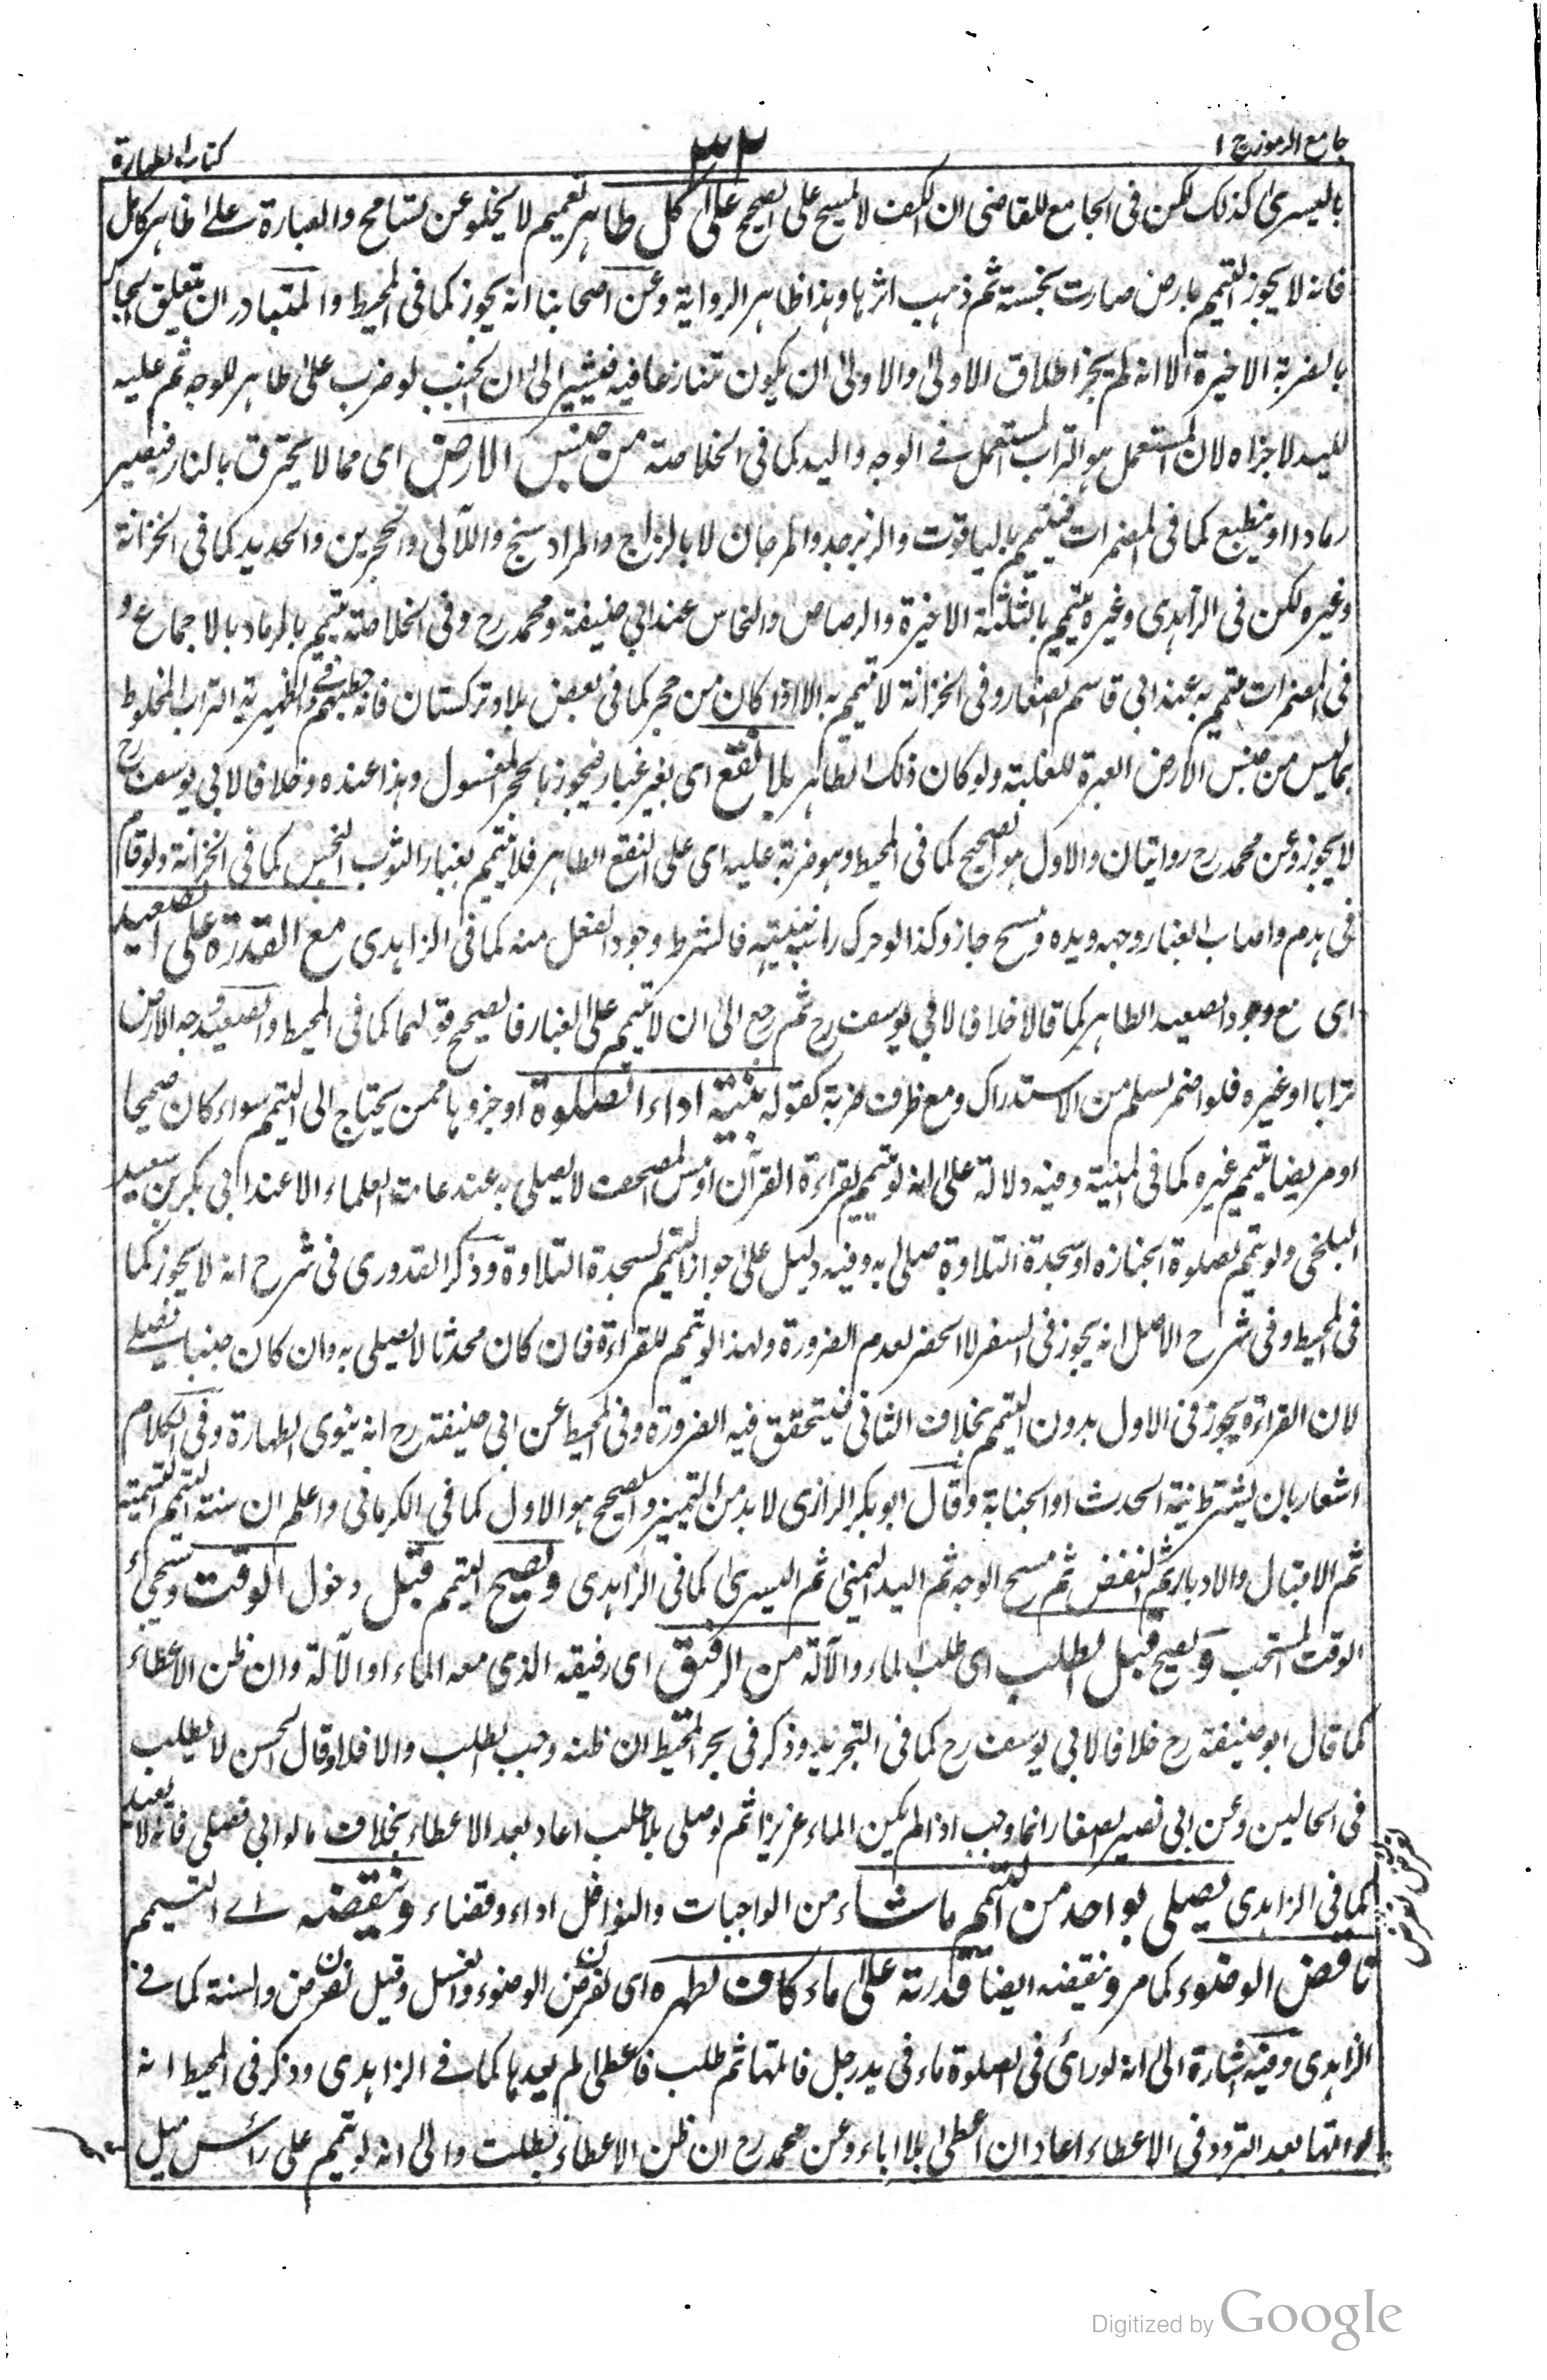 جامع الرموز ج ۱
۳۲
كتاب الطهارة
باليسرى كذلك لكن فى الجامع للقاضى ان الكف لا يمسح على الصحيح على كل طاهر تعميم لا يخلو عن تسامح والعبارة على طاهر كامل
فانه لا يجوز التيمم بارض صارت نجسته ثم ذهب اثرها وهذا ظاهر الرواية وعن اصحابنا انه يجوز كما فى المحيط والمتبادر ان يتعلق الجار
بالضربة الاخيرة الا انه لم يجز اطلاق الاولى والاولى ان يكون متنازعا فيه فيشير الى ان الجنب لو ضرب على طاهر للوجه ثم عليه
لليد لاجزاه لان المستعمل هو التراب المستعمل فے الوجه واليد كما فى الخلاصته من جنس الارض اى مما لا يحترق بالنار فيصير
رمادا او ينطبع كما فى المضمرات فيتيمم بالياقوت والزبرجد والمرجان لا بالزجاج والمراد سنج واللآلى والحجرين والحديد كما فى الخزانة
وغيره لكن فى الزاهدى وغيره يتيمم بالثلثة الاخيرة والرصاص والنحاس عند ابي حنيفة ومحمد رح وفى الخلاصته يتيمم بالرماد بالاجماع و
فى المضمرات يتيمم به عند ابى قاسم الصفار وفى الخزانة لا يتيمم به الا اذا كان من حجر كما فى بعض بلاد تركستان فانه حطبهم وفے الظهيرية التراب المخلوط
بما ليس من جنس الارض العبرة للغلبة ولو كان ذلك الطاهر بلا نقع اى بغير غبار فيجوز بالحجر المغسول وهذا عنده وخلافا لابى يوسف رح
لا يجوز وعن محمد رح روايتان والاول هو الصحيح كما فى المحيط وهو ضربة عليه اى على النقع الطاهر فلا يتيمم بغبار الثوب النجس كما فى الخزانة ولو قام
فى هدم واصاب الغبار وجهه ويده ومسح جاز وكذا لو حرك راسه بنيته فالشرط وجود الفعل منه كما فى الزاهدى مع القدرة على الصعيد
اى مع وجود الصعيد الطاهر كما قالا خلافا لابي يوسف رح ثم رجع الى ان لا يتيمم على الغبار فالصحيح قولهما كما فى المحيط والصعيد وجه الارض
ترابا او غيره فلو اضمر لسلم من الاستدراك ومع ظرف ضربة كقوله بنية اداء الصلوة او جزوها ممن يحتاج الى التيمم سواء كان صحيحا
او مريضا يتيمم غيره كما فى المنية وفيه دلالة على انه لو تيمم لقراءة القرآن او مس المصحف لا يصلى به عند عامة العلماء الا عند ابى بكر بن سعيد
البلخى ولو تيمم لصلوة الجنازه او سجدة التلاوة صلى به وفيه دليل على جواز التيمم لسجدة التلاوة وذكر القدورى فى شرح انه لا يجوز كما
فى المحيط وفى شرح الاصل انه يجوز فى السفر لا الحضر لعدم الضرورة ولهذا لو تيمم للقراءة فان كان محدثا لا يصلى به وان كان جنبا يصلے
لان القراءة يجوز فى الاول بدون التيمم بخلاف الثانى فيتحقق فيه الضرورة وفى المحيط عن ابى حنيفة رح انه ينوى الطهارة وفى الكلام
اشعار بان يشترط نية الحدث او الجنابة وقال ابوبكر الرازى لا بد من التمييز والصحيح هو الاول كما فى الكرمانى واعلم ان سنته التيمم التسمية
ثم الاقبال والادبار ثم النفض ثم مسح الوجه ثم اليد اليمنى ثم اليسرى كما فى الزاهدى ويصح التيمم قبل دخول الوقت وسيجئ
الوقت المستحب ويصح قبل الطلب اى طلب الماء والآلة من الرفيق اى رفيقه الذى معه الماء او الآلة وان ظن الاعطاء
كما قال ابو حنيفة رح خلافا لابى يوسف رح كما فى التجريد وذكر فى بحر المحيط ان ظنه وجب الطلب والا فلا وقال الحسن لا يطلب
فى الحالين وعن ابى نصير الصفار انما وجب اذا لم يكن الماء عزيزا ثم لو صلى بلا طلب اعاد بعد الاعطاء بخلاف ما لو ابى فصلى فانه لا يعيد
كما فى الزاهدى يصلى بواحد من التيمم ما شاء من الواجبات والنوافل اداء وقضاء وينقضه اے التيمم
ناقض الوضوء كما مر وينقضه ايضا قدرته على ماء كاف لطهره اى لفرض الوضوء والغسل وقيل لفرض والسنة كما فے
الزاهدى وفيه اشارة الى انه لو رأى فى الصلوة ماء فى يد رجل فاتمها ثم طلب فاعطى لم يعيدها كما فے الزاهدى وذكر فى المحيط انه
لو اتمها بعد التردد فى الاعطاء اعاد ان اعطى بلا اباء وعن محمد رح ان ظن الاعطاء بطلت والى انه لو تيمم على رأس ميل
Digitized by Google